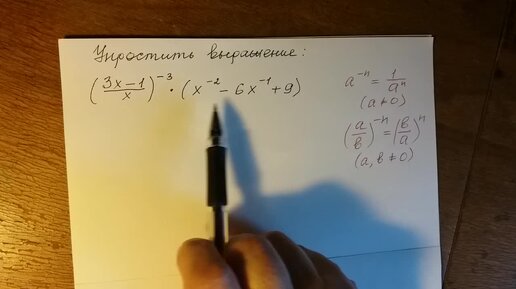 Упростить выражение:
(3x-1/x)⁻³ · (x⁻² - 6x⁻¹ + 9)
a⁻ⁿ = 1/aⁿ
(a≠0)
(a/b)⁻ⁿ = (b/a)ⁿ
(a, b ≠ 0)